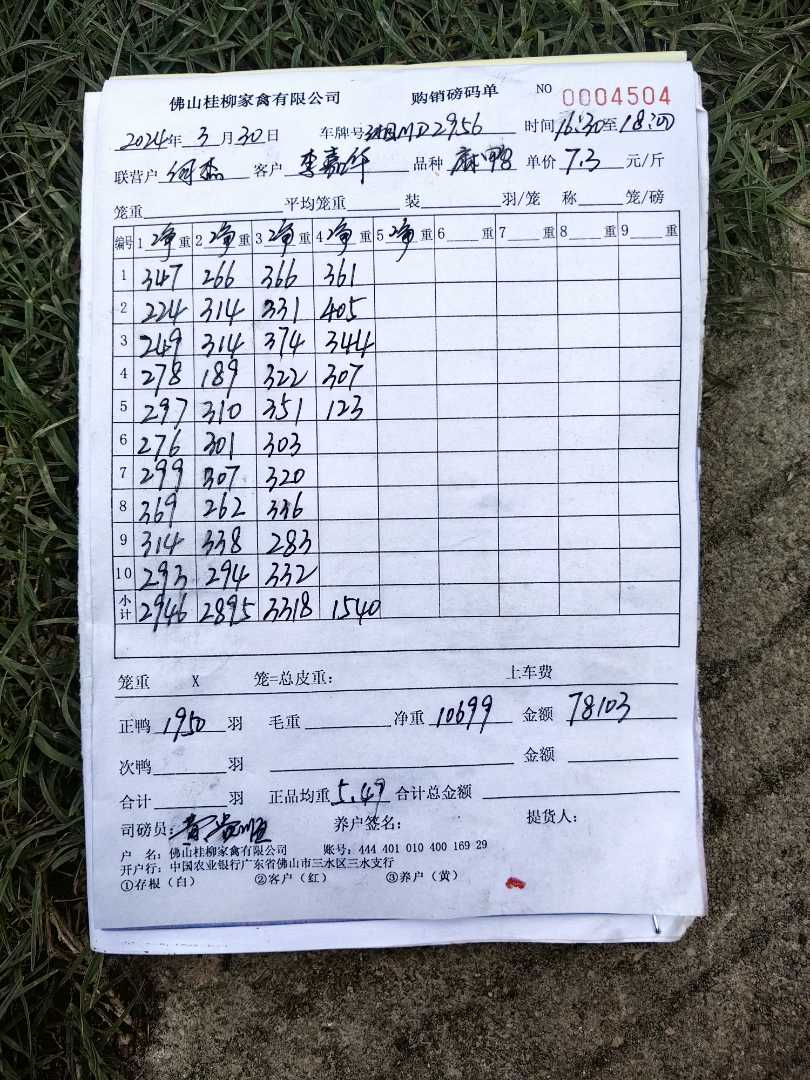 佛山桂柳家禽有限公司 购销磅码单 NO 0004504
2024年 3 月 30 日 车牌号 湘MD2956 时间 16:30 至 18:00
联营户 何杰 客户 李嘉华 品种 麻鸭 单价 7.3 元/斤
笼重 平均笼重 装 羽/笼 称 笼/磅
编号 1 净 重 2 净 重 3 净 重 4 净 重 5 净 重 6 重 7 重 8 重 9 重
1 347 266 366 361
2 224 314 331 405
3 249 314 374 344
4 278 189 322 307
5 297 310 351 123
6 276 301 303
7 299 307 320
8 369 262 336
9 314 338 283
10 293 294 332
小计 2946 2895 3318 1540
笼重 X 笼=总皮重: 上车费
正鸭 1950 羽 毛重 净重 10699 金额 78103
次鸭 羽 金额
合计 羽 正品均重 5.49 合计总金额
司磅员: 养户签名: 提货人:
户 名: 佛山桂柳家禽有限公司 账号: 444 401 010 400 169 29
开户行: 中国农业银行广东省佛山市三水区三水支行
①存根(白) ②客户(红) ③养户(黄)